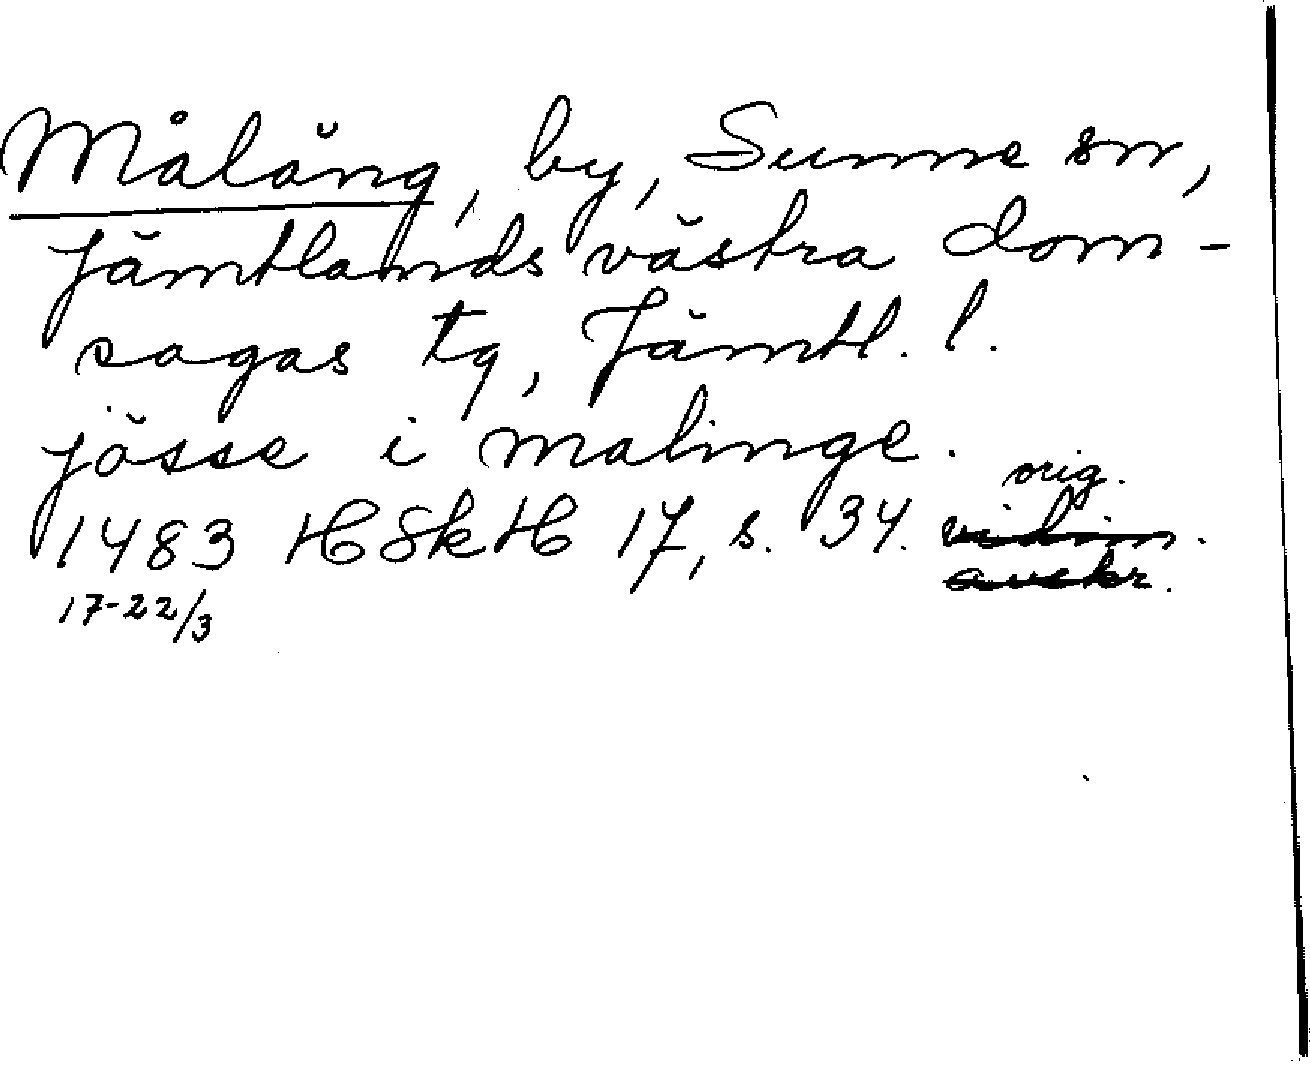 Måläng, by, Sunne sn,
Jämtlands västra dom-
sagas tg, Jämtl. l.
jösse i malinge.
orig.
1483 HSkH 17, s. 34. vidim.
avskr.
17-22/3